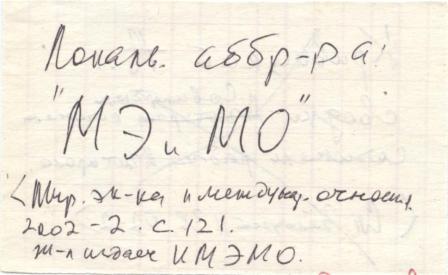 Локальн. аббр-ра:
"МЭиМО"
< Мир. эк-ка и междунар. отношен.
2002 - 2. с. 121.
ж-л издает ИМЭМО.